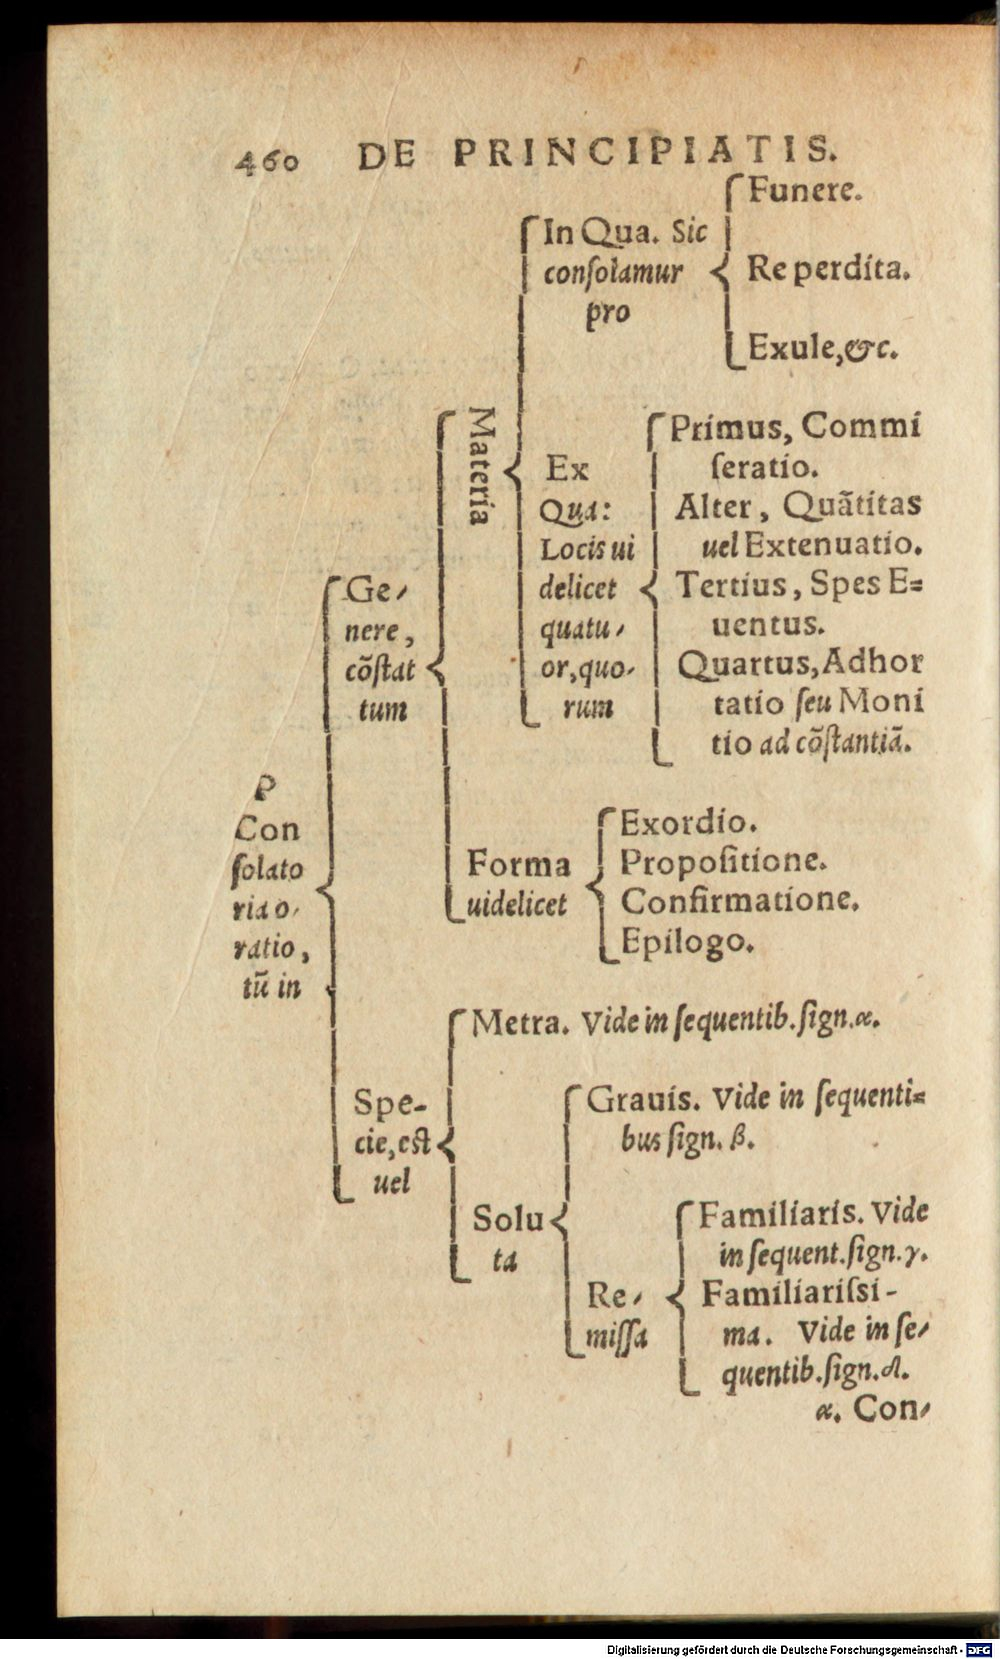 460 DE PRINCIPIATIS.
P
Con
ſolato
ria o,
ratio,
tũ in
Ge,
nere,
cõſtat
tum
Materia
In Qua. Sic
conſolamur
pro
Funere.
Re perdita.
Exule, &c.
Ex
Qua:
Locis ui
delicet
quatu,
or, quo,
rum
Primus, Commi
ſeratio.
Alter, Quãtitas
uel Extenuatio.
Tertius, Spes E=
uentus.
Quartus, Adhor
tatio ſeu Moni
tio ad cõſtantiã.
Forma
uidelicet
Exordio.
Propoſitione.
Confirmatione.
Epilogo.
Spe-
cie, eſt
uel
Metra. Vide in ſequentib. ſign. α.
Solu
ta
Grauis. Vide in ſequenti=
bus ſign. β.
Re,
miſſa
Familiaris. Vide
in ſequent. ſign. γ.
Familiariſsi-
ma. Vide in ſe,
quentib. ſign. δ.
α. Con,
Digitalisierung gefördert durch die Deutsche Forschungsgemeinschaft - DFG